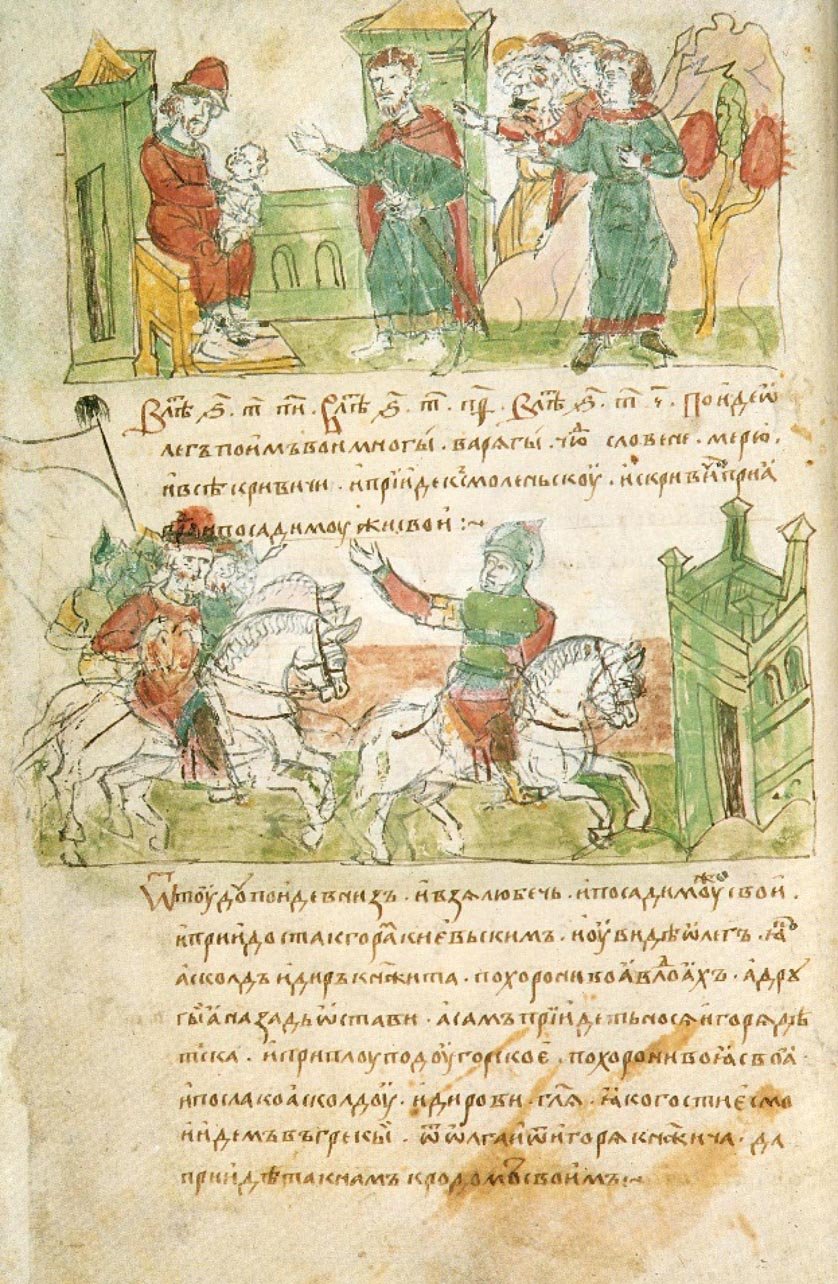 В лѣⷮ ҂ѕ҃. т҃ п҃н. В лѣⷮ ҂ѕ҃. т҃. п҃ѳ. В лѣⷮ ҂ѕ҃. т҃. ч҃. Поиде ѡ
легъ поимъ вои многы. варягы. чюⷣ словене. мерю.
и всѣ кривичи. и прїиде къ смоленьскоу. и с кривичи прїа
и посади моужи свои :~
Ѿтоудоу поиде внизъ. и взя любечь. и посади моужи свои.
и прїидоста к гораⷨ киевьскимъ. и оувидѣ ѡлегъ. ꙗко
асколдъ и диръ кнѧжита. похорони воꙗ в лоⷣꙗхъ. а дру
гыꙗ назадь ѡстави. а самъ прїиде нося игоря дѣ
тска. и приплоу под оугорское. похорони воꙗ своꙗ.
и посла ко асколдоу. и дирови. глꙗ. ꙗко гостие есмо
и идемъ въ грекы. ѿ ѡлга и ѿ игоря кнѧжича. да
прїидѣта к намъ к родомъ своимъ :~